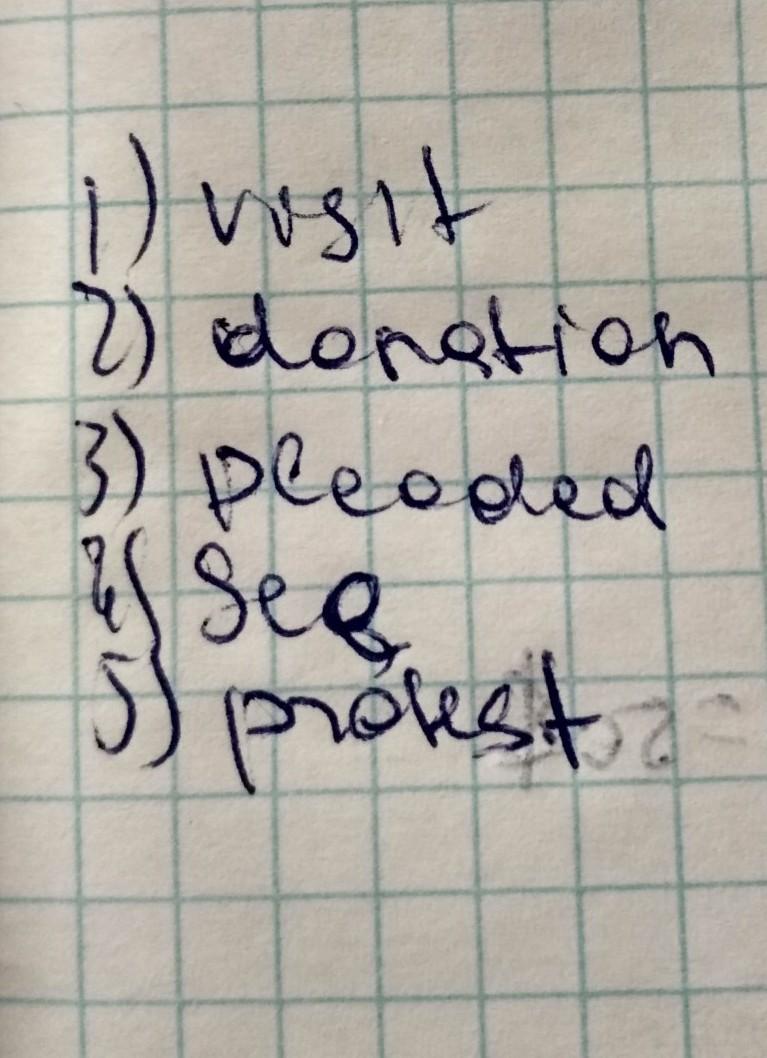 1) visit
2) donation
3) pleaded
4) sea
5) protest